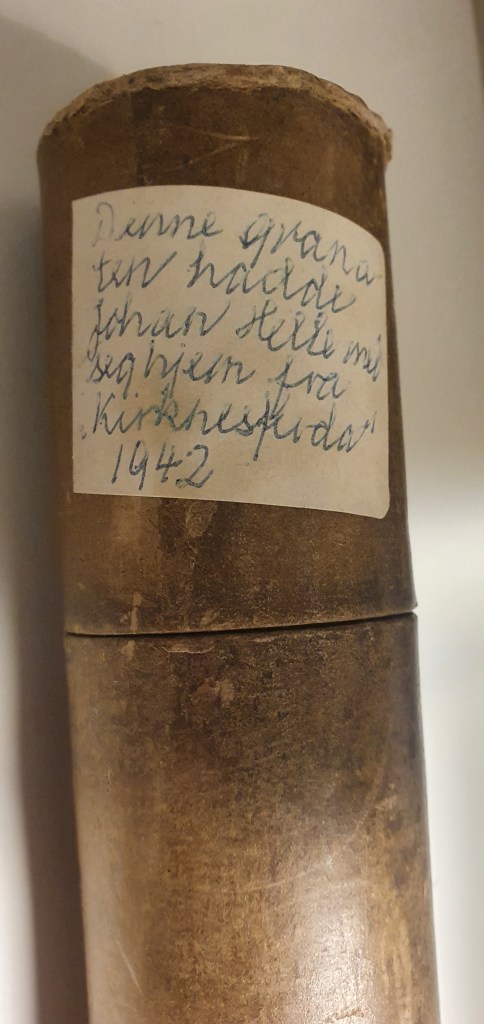 Denne grana
ten hadde
Johan Helle med
seg hjem fra
"Kirknesferda"
1942